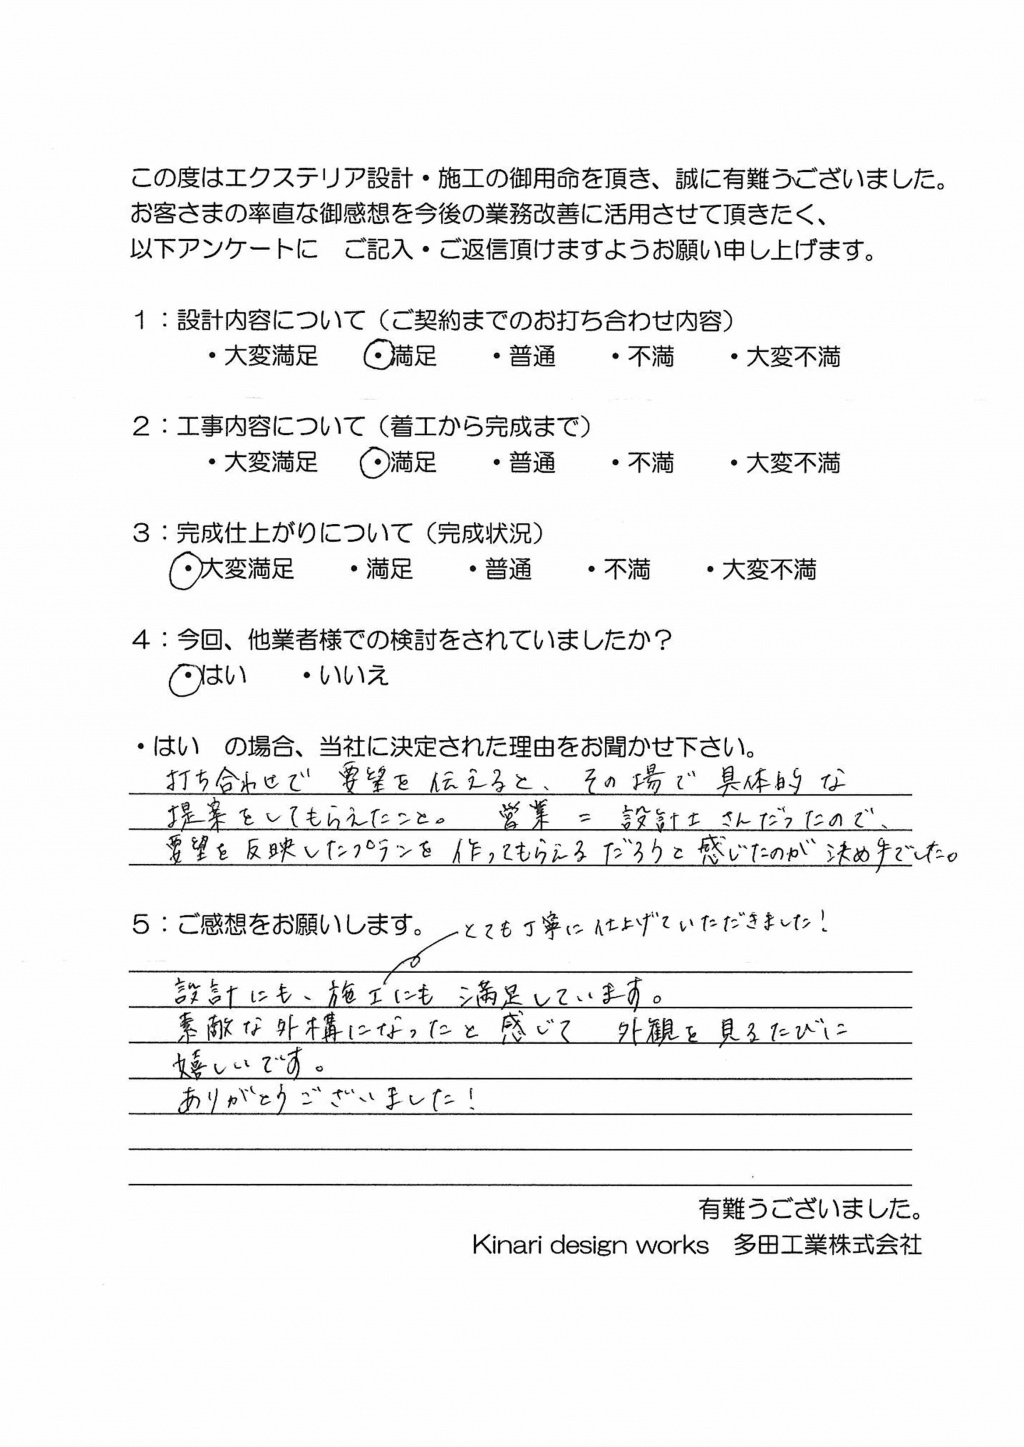 この度はエクステリア設計・施工の御用命を頂き、誠に有難うございました。
お客さまの率直な御感想を今後の業務改善に活用させて頂きたく、
以下アンケートに　ご記入・ご返信頂けますようお願い申し上げます。
１：設計内容について（ご契約までのお打ち合わせ内容）
・大変満足　・満足　・普通　・不満　・大変不満
２：工事内容について（着工から完成まで）
・大変満足　・満足　・普通　・不満　・大変不満
３：完成仕上がりについて（完成状況）
・大変満足　・満足　・普通　・不満　・大変不満
４：今回、他業者様での検討をされていましたか？
・はい　・いいえ
・はい　の場合、当社に決定された理由をお聞かせ下さい。
打ち合わせで 要望を伝えると、その場で具体的な
提案をしてもらえたこと。 営業＝設計士さんだったので、
要望を反映したプランを作ってもらえるだろうと感じたのが決め手でした。
５：ご感想をお願いします。
とても丁寧に仕上げていただきました！
設計にも、施工にも満足しています。
素敵な外構になったと感じて 外観を見るたびに
嬉しいです。
ありがとうございました！
有難うございました。
Kinari design works　多田工業株式会社